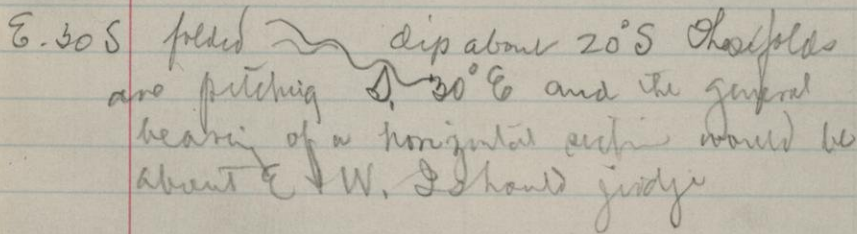 E. 30 S folded dip about 20°S These folds
are pitching S. 30°E and the general
bearing of a horizontal section would be
about E & W. I should judge